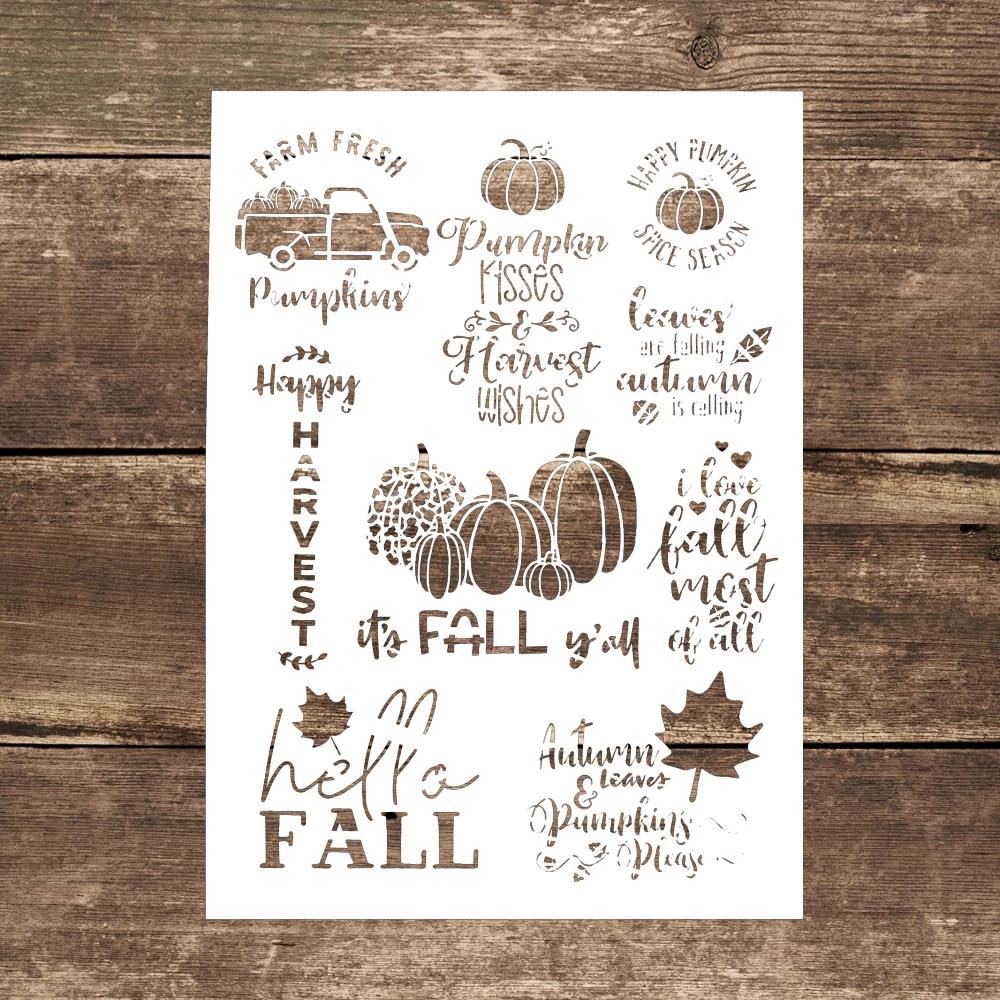 FARM FRESH
Pumpkins
Pumpkin
Kisses
&
Harvest
Wishes
HAPPY PUMPKIN
SPICE SEASON
leaves
are falling
autumn
is calling
Happy
HARVEST
it's FALL y'all
i love
fall
most
of all
hello
FALL
Autumn
leaves
&
Pumpkins
Please